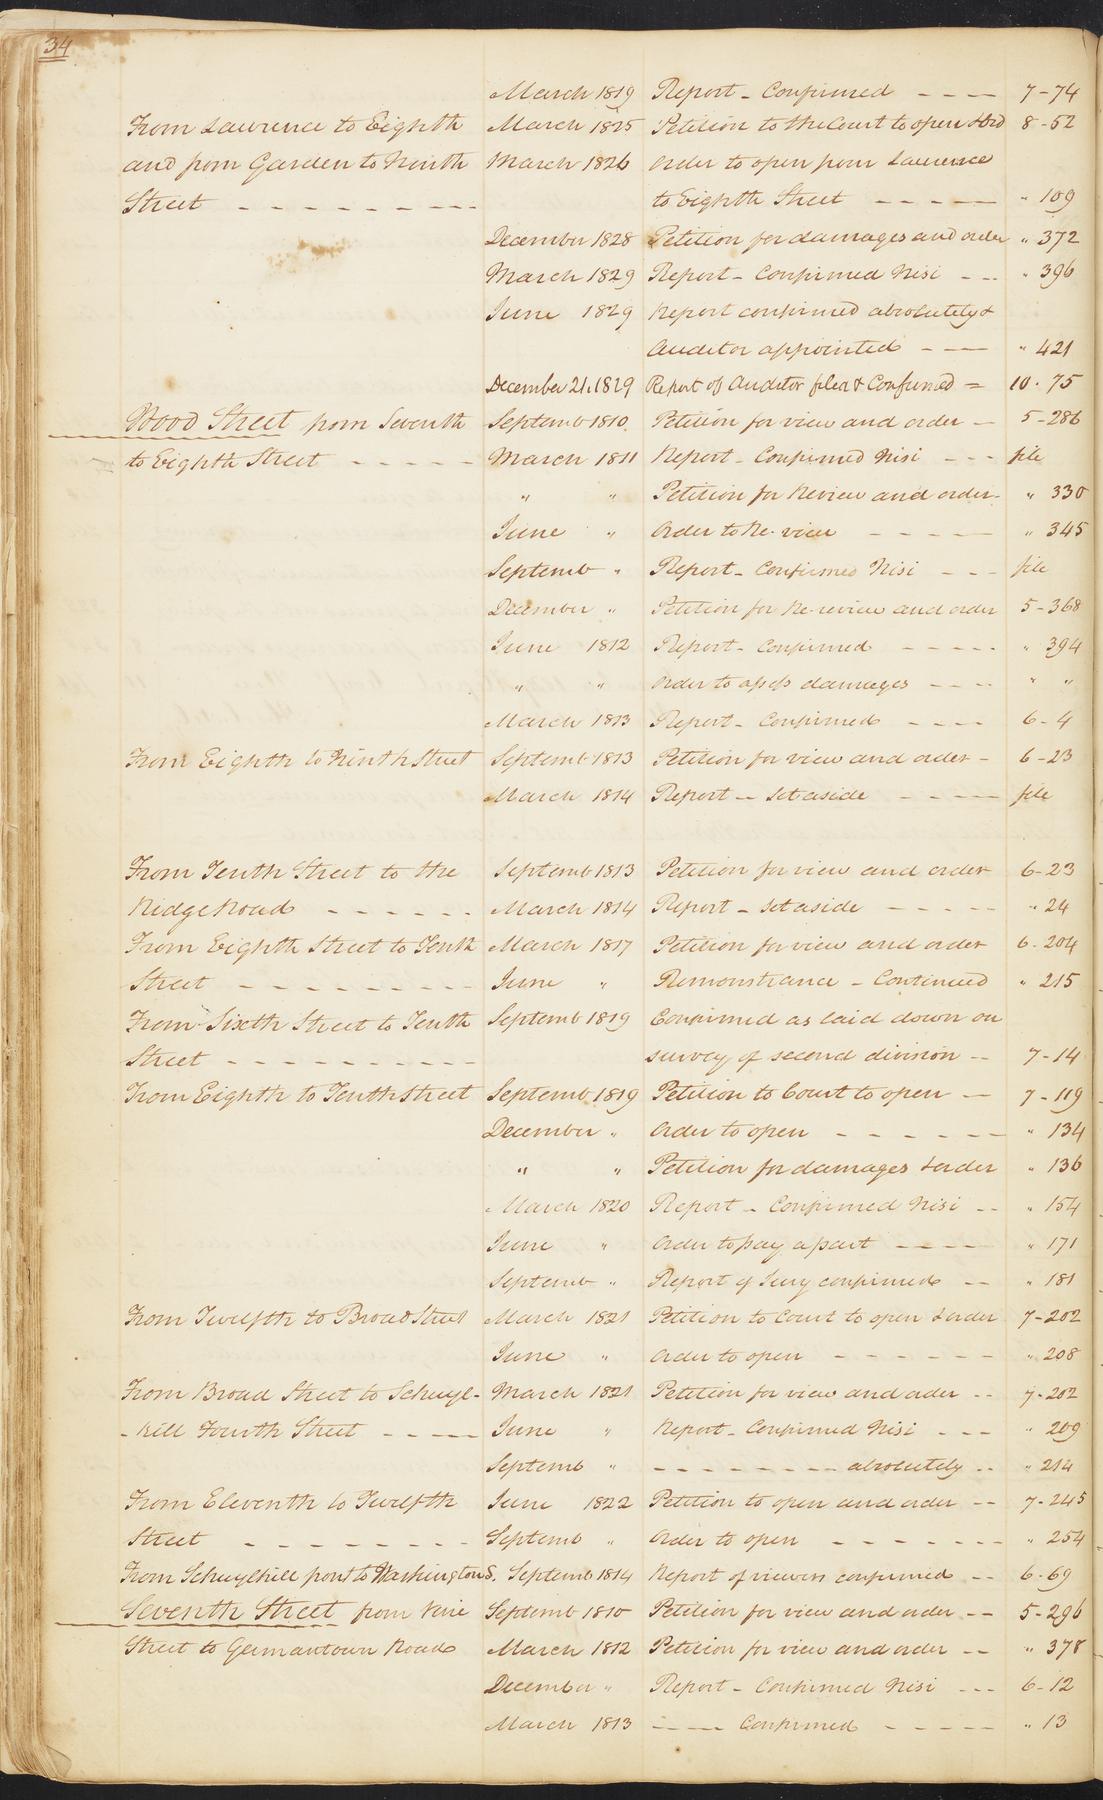 34
March 1819 Report - Confirmed - - - - 7-74
From Lawrence to Eighth March 1825 Petition to the Court to open &ord 8-52
and from Garden to Ninth March 1826 Order to open from Lawrence
Street - - - - - - - - - to Eighth Street - - - - - " 109
December 1828 Petition for damages and order " 372
March 1829 Report - Confirmed Nisi - - - " 396
June 1829 Report confirmed absolutely &
Auditor appointed - - - " 421
December 21. 1829 Report of Auditor filed & Confirmed = 10. 75
Wood Street from Seventh Septemb 1810 Petition for view and order - 5-286
to Eighth Street - - - - - March 1811 Report - Confirmed Nisi - - - file
" " Petition for Review and order - " 330
June " Order to Re-view - - - - - " 345
Septemb " Report - Confirmed Nisi - - - file
December " Petition for Re-review and order 5-368
June 1812 Report - Confirmed - - - - - " 394
" " Order to assess damages - - - - " "
March 1813 Report - Confirmed - - - - 6-4
From Eighth to Ninth Street Septemb 1813 Petition for view and order - 6-23
March 1814 Report - Set aside - - - - file
From Tenth Street to the Septemb 1813 Petition for view and order 6-23
Ridge Road - - - - - - March 1814 Report - set aside - - - - - " 24
From Eighth Street to Tenth March 1817 Petition for view and order 6-204
Street - - - - - - - - - June " Remonstrance - Continued " 215
From Sixth Street to Tenth Septemb 1819 Confirmed as laid down on
Street - - - - - - - - - - survey of second division - - 7-14
From Eighth to Tenth Street Septemb 1819 Petition to Court to open - 7-119
December " Order to open - - - - - - " 134
" " Petition for damages & order " 136
March 1820 Report - Confirmed Nisi - - " 154
June " Order to pay a part - - - - " 171
Septemb " Report of Jury confirmed - - " 181
From Twelfth to Broad Street March 1821 Petition to Court to open & order 7-202
June " Order to open - - - - - - " 208
From Broad Street to Schuyl- March 1821 Petition for view and order - - 7-202
- kill Fourth Street - - - - June " Report - Confirmed Nisi - - - " 209
Septemb " - - - - - - - - absolutely - - " 214
From Eleventh to Twelfth June 1822 Petition to open and order - - 7-245
Street - - - - - - - - - Septemb " Order to open - - - - - - - " 254
From Schuylkill front to Washington S. Septemb 1814 Report of viewers confirmed - - 6-69
Seventh Street from Vine Septemb 1810 Petition for view and order - - 5-296
Street to Germantown Road March 1812 Petition for view and order - - " 378
December " Report - Confirmed Nisi - - - 6-12
March 1813 - - - - Confirmed - - - - - " 13